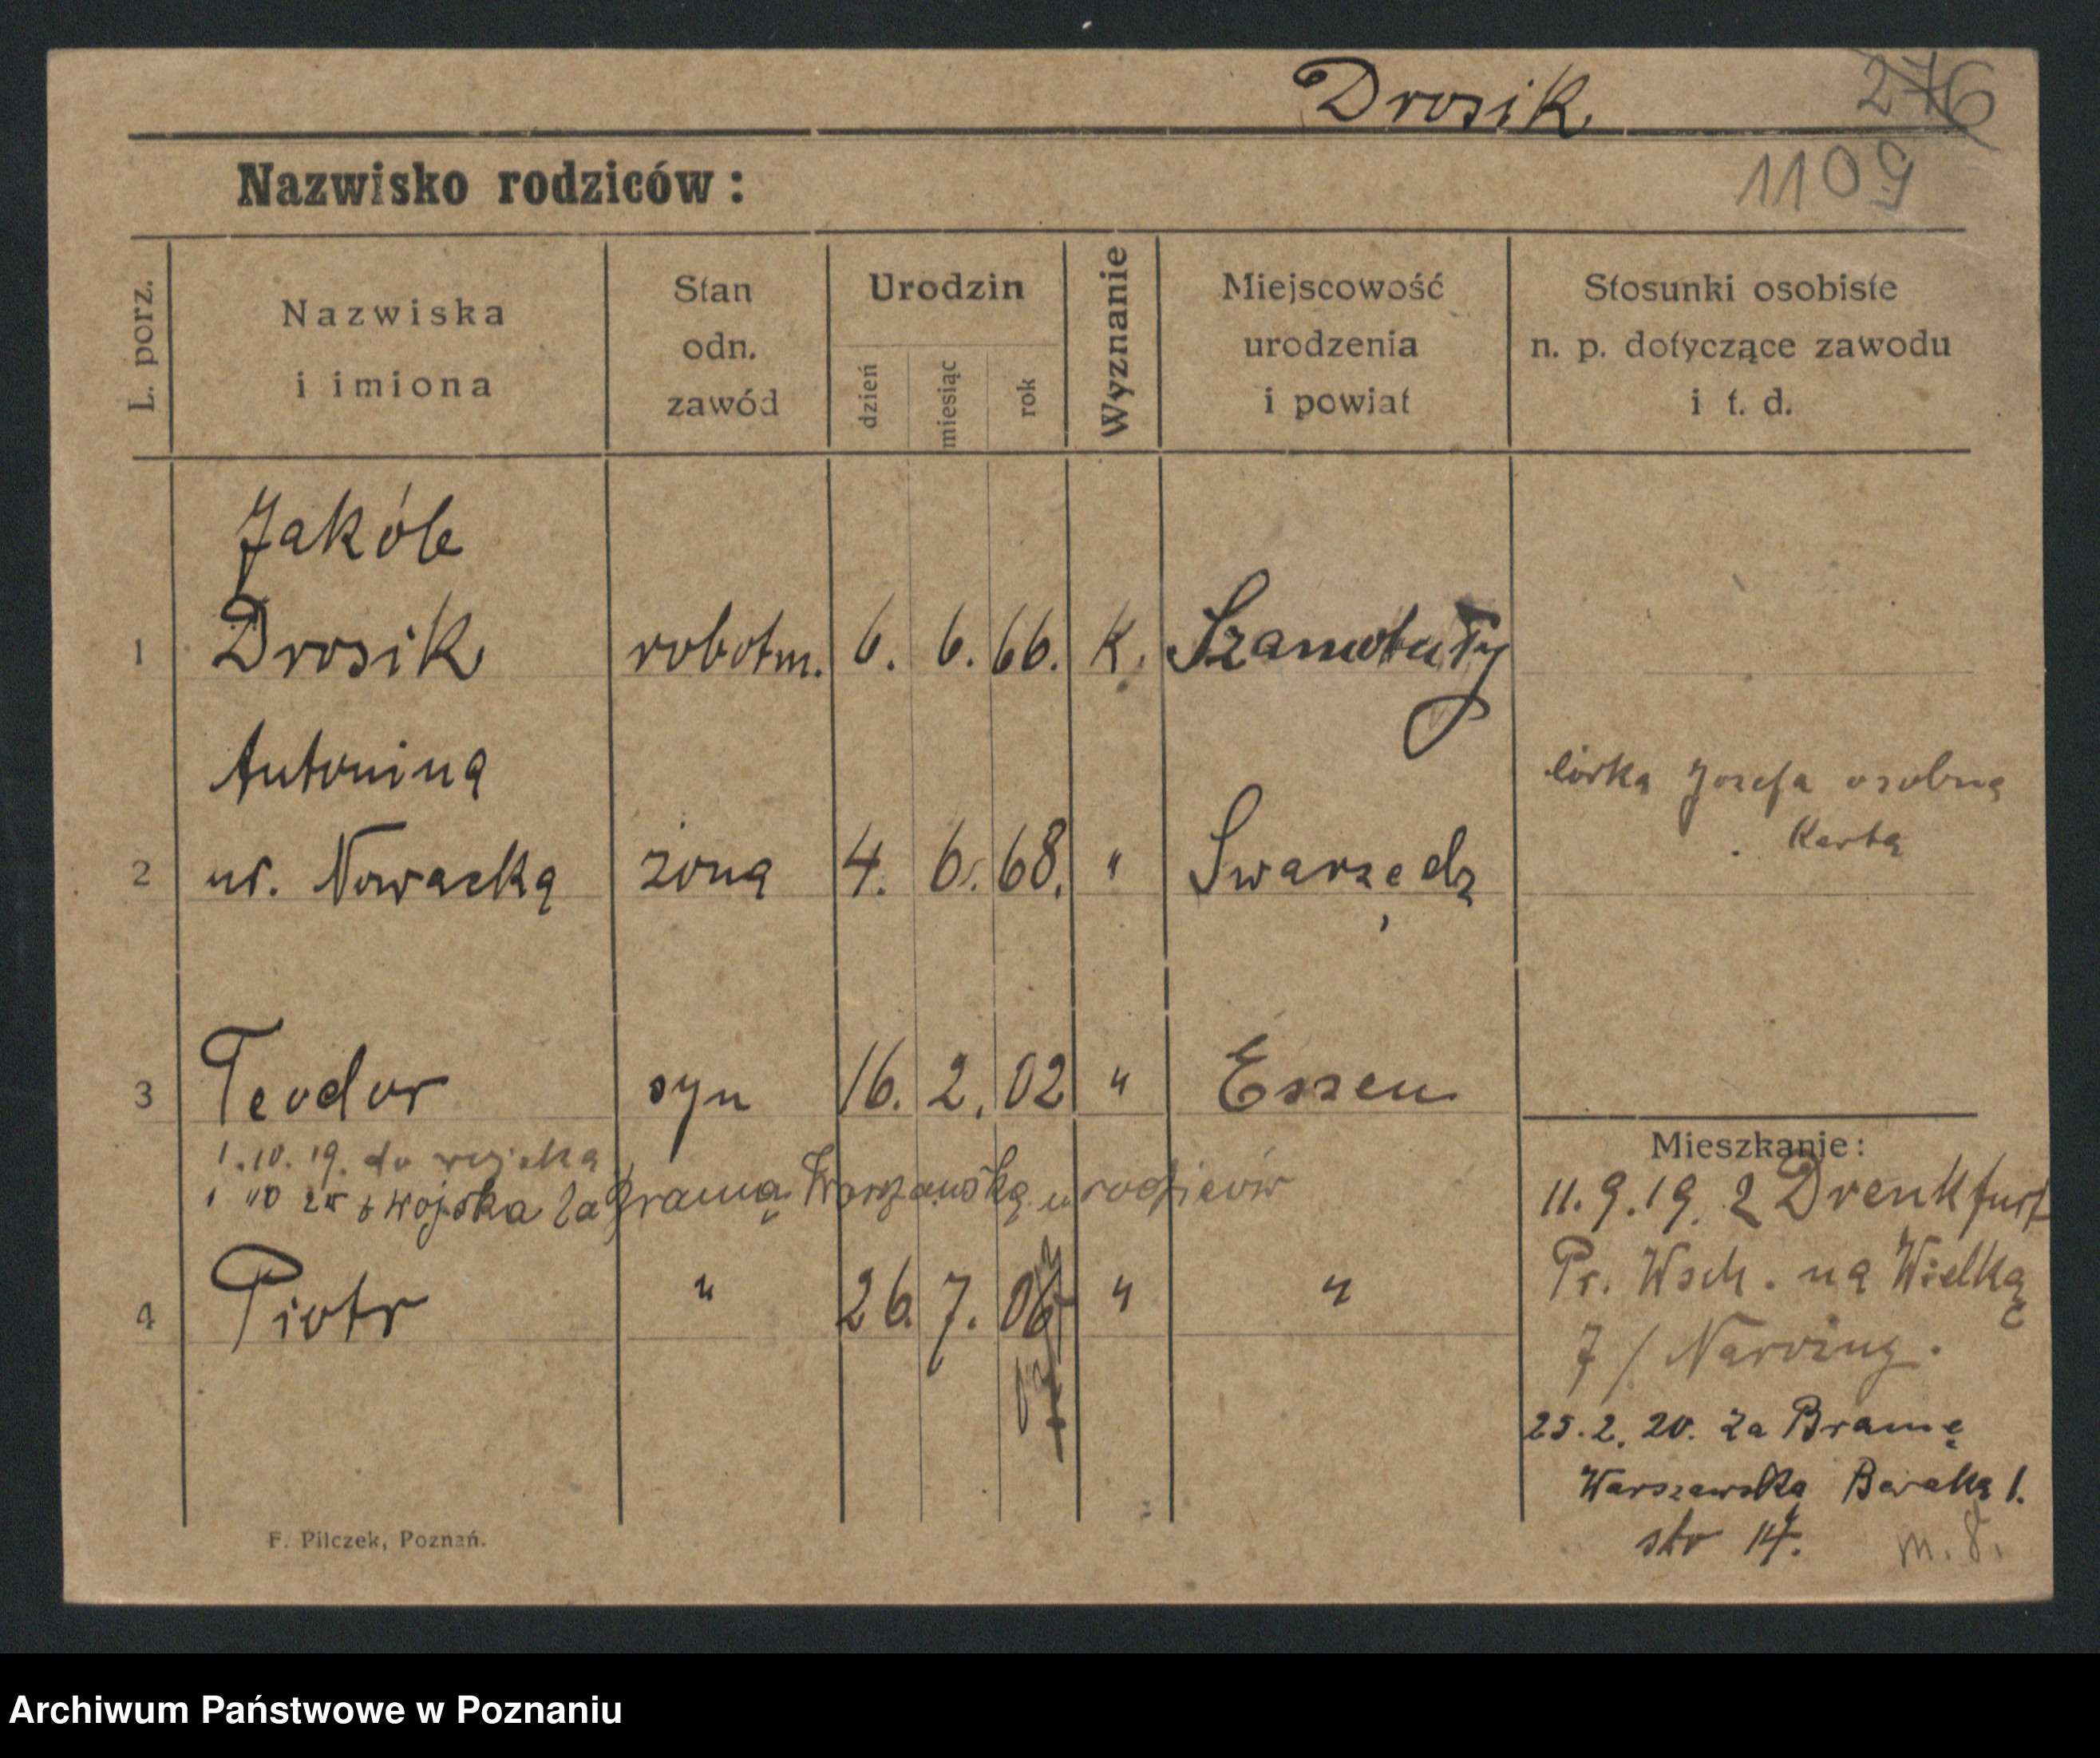 Drosik 276
1109
Nazwisko rodziców:
L. porz.
Nazwiska
i imiona
Stan
odn.
zawód
Urodzin
dzień
miesiąc
rok
Wyznanie
Miejscowość
urodzenia
i powiat
Stosunki osobiste
n. p. dotyczące zawodu
i t. d.
Jakób
1 Drosik robotn. 6. 6. 66. K. Szamotuły
Antonina
córka Józefa osobna
karta
2 ur. Nowacka żona 4. 6. 68. " Swarzędz
3 Teodor syn 16. 2. 02 " Essen
1.10.19. do wojska
z wojska Za Bramą Warszawską u rodziców
4 Piotr " 26. 7. "  "
Mieszkanie:
11.9.19. z Drenkfurt
Pr. Wsch. na Wielką
7/
25.2.20. za Bramę
Warszawską Baraka 1.
m. 8.
F. Pilczek, Poznań.
Archiwum Państwowe w Poznaniu